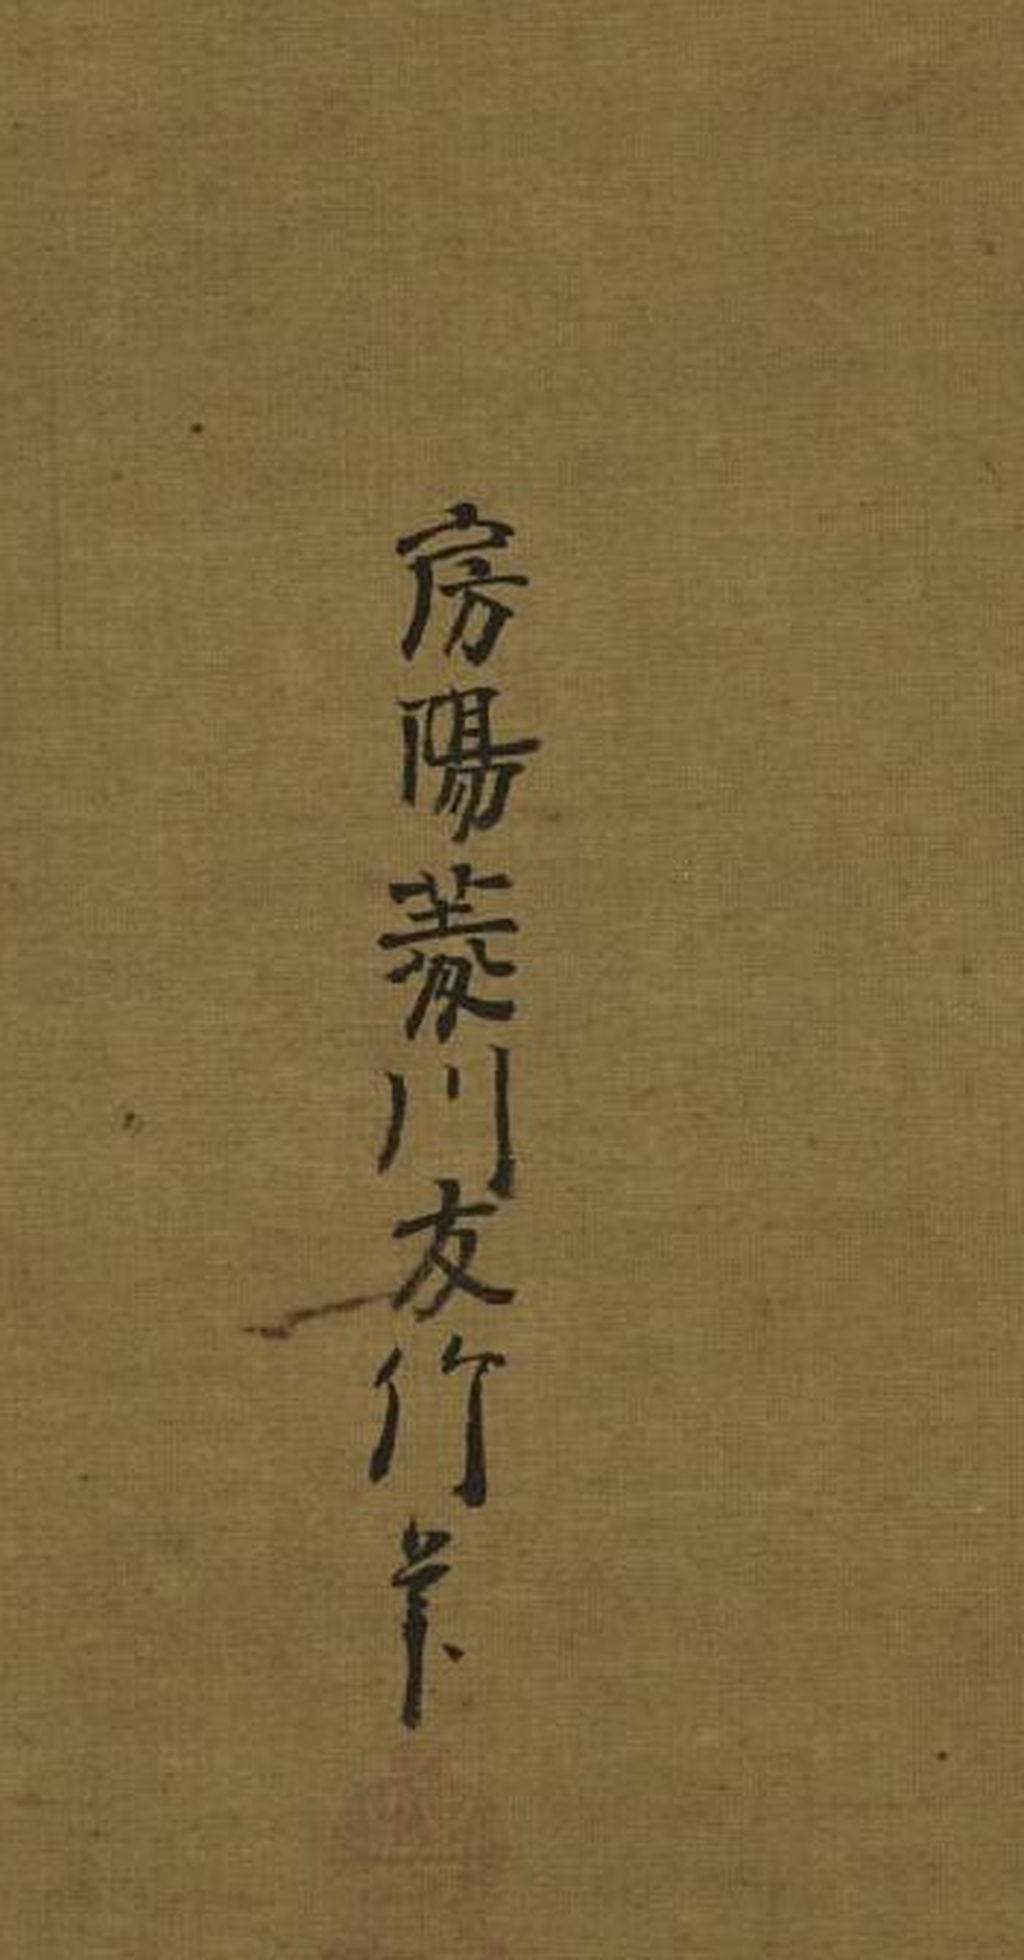 房陽菱川友竹筆